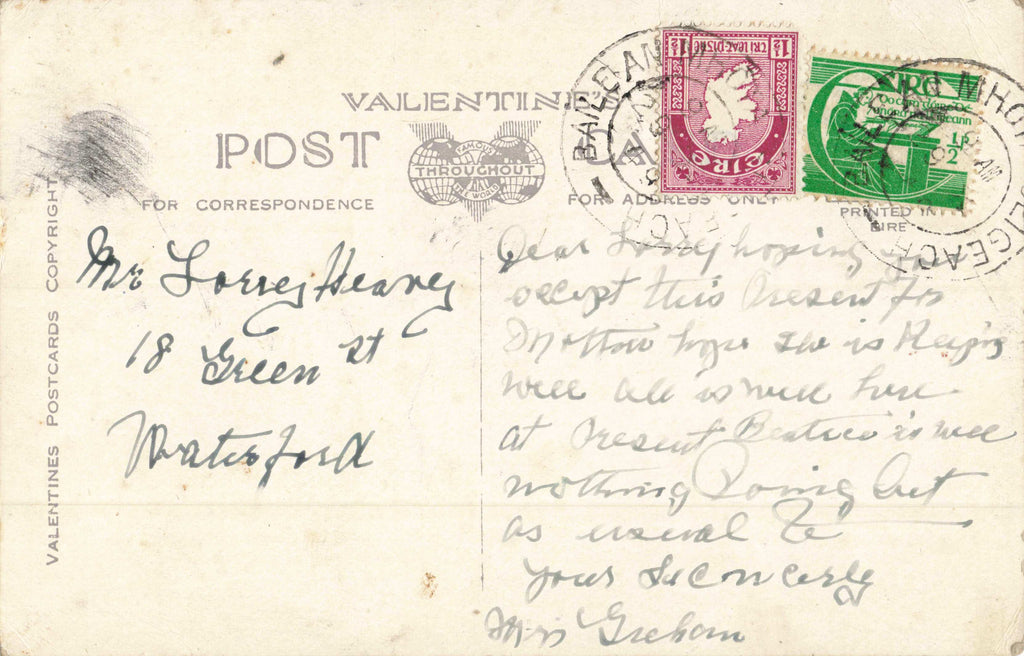 VALENTINE'S
POST
FAMOUS
THROUGHOUT
THE WORLD
FOR CORRESPONDENCE
FOR ADDRESS ONLY
PRINTED IN
EIRE
VALENTINES POSTCARDS COPYRIGHT
1½ TRI LEAT-PISNE 1½
EIRE
EIRE
½P
BAILE AN
EACH
MHOT
AM
Mr Lorrey Heaney
18 Green St
Waterford
Dear Lorrey hoping you
accept this Present for
Mother hope she is Keeping
well all is well here
at Present Beatrice is well
nothing Doing but
as usual
your Sincerely
Mrs Greham